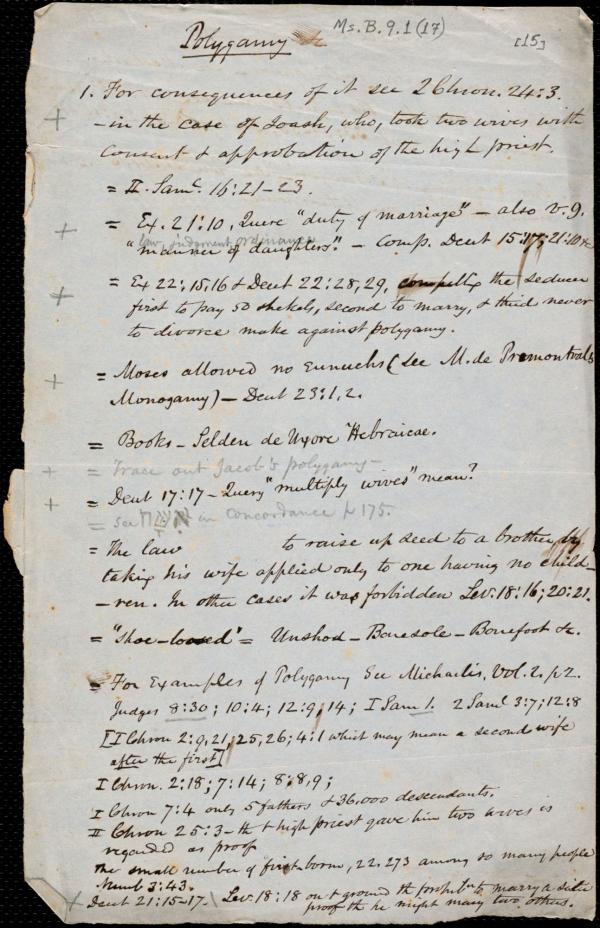 Polygamy Ms. B. 9.1 (17) [15]
1. For consequences of it see 2 Chron. 24:3.
– in the case of Joash, who, took two wives with
consent & approbation of the high priest.
= II. Saml. 16:21–23.
= Ex. 21:10, Quere "duty of marriage" – also v. 9.
law, judgment, ordinance
"manner of daughters." – Comp. Deut 15:17; 21:10 &c
= Ex 22:15,16 & Deut 22:28,29, the seducer
first to pay 50 shekels, second to marry, & third never
to divorce make against polygamy.
= Moses allowed no Eunuchs (see M. de Premontval's
Monogamy) – Deut 23:1,2.
= Books – Selden de Uxore Hebraicae.
= Trace out Jacob's polygamy –
= Deut 17:17 – Query "multiply wives" mean?
= See in concordance p 175.
= The law to raise up seed to a brother by
taking his wife applied only to one having no child-
-ren. In other cases it was forbidden Lev. 18:16; 20:21.
= "Shoe-loosed" = Unshod – Baresole – Barefoot &c.
= For Examples of Polygamy See Michaelis, Vol. 2. p 2.
Judges 8:30; 10:4; 12:9,14; I Sam 1. 2 Saml 3:7; 12:8
[I Chron 2:9,21,25,26; 4:1 which may mean a second wife
after the first]
I Chron. 2:18; 7:14; 8:8,9;
I Chron 7:4 only 5 fathers & 36,000 descendants.
II Chron 25:3 – the high priest gave him two wives is
regarded as proof
The small number of first-born, 22,273 among so many people
Numb 3:43.
Deut 21:15–17. Lev. 18:18 on ground to marry a sister
proof the he might marry two others.